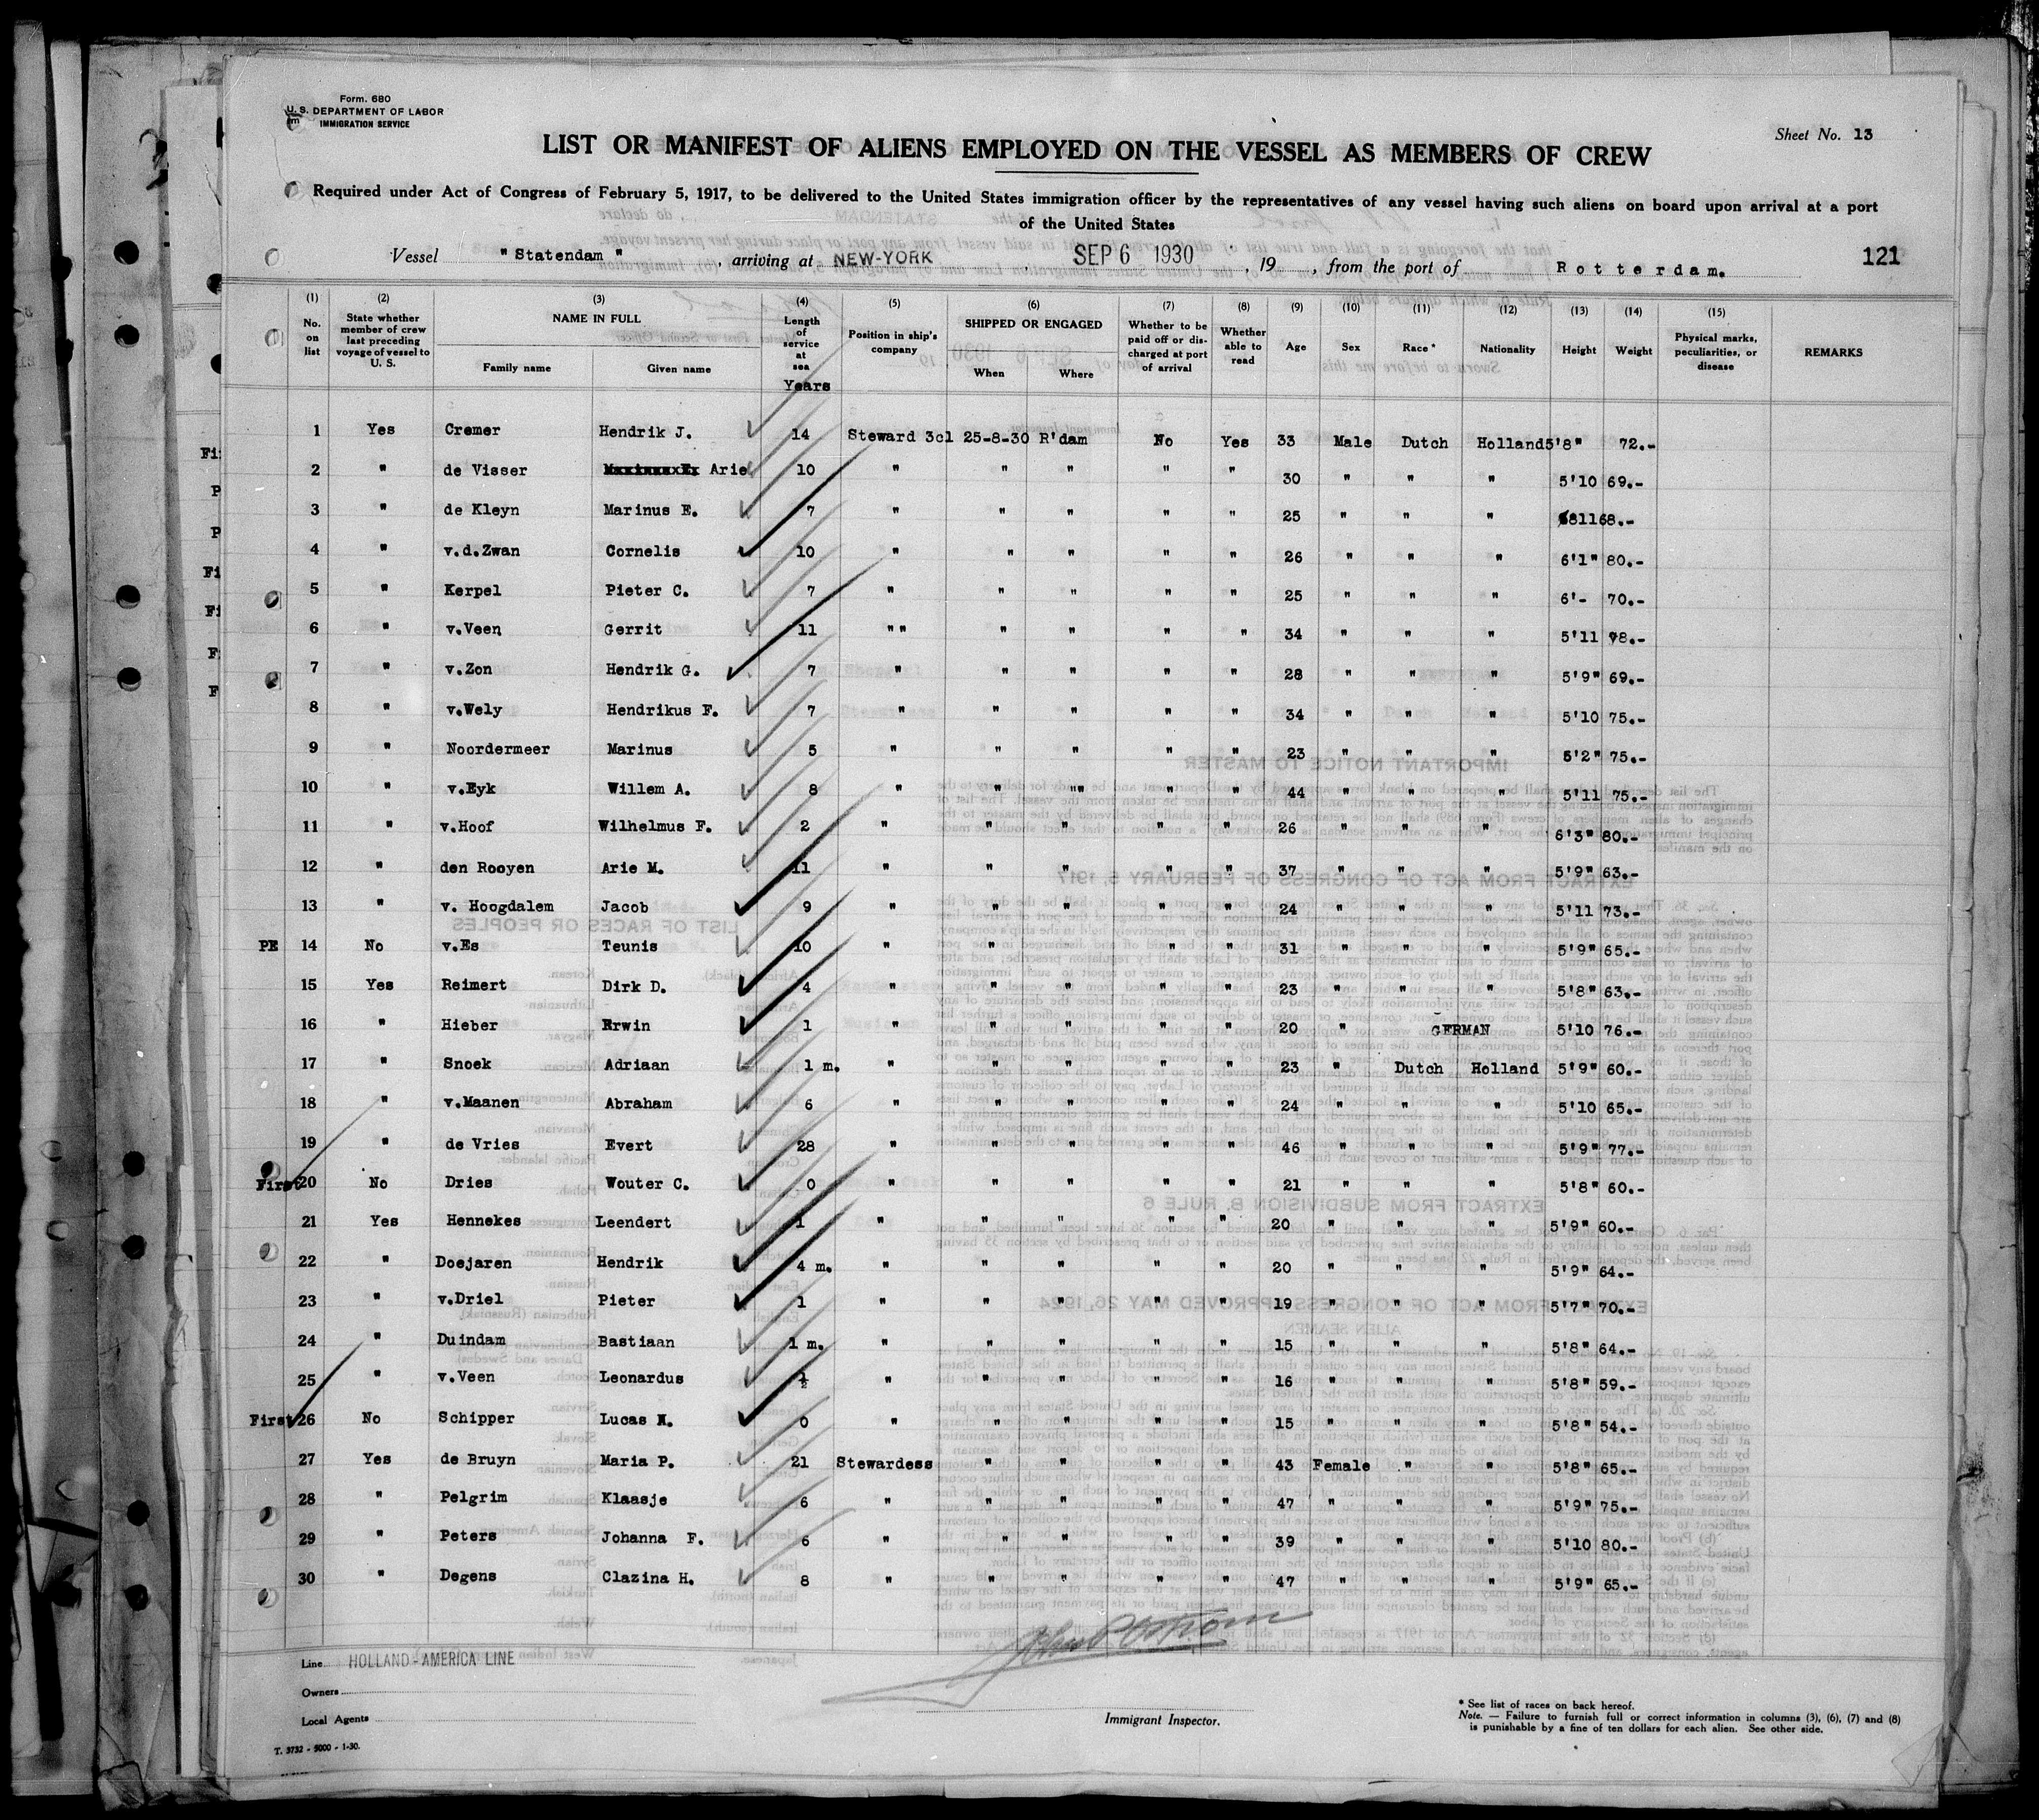 Form. 680
U. S. DEPARTMENT OF LABOR
IMMIGRATION SERVICE
Sheet No. 13
LIST OR MANIFEST OF ALIENS EMPLOYED ON THE VESSEL AS MEMBERS OF CREW
Required under Act of Congress of February 5, 1917, to be delivered to the United States immigration officer by the representatives of any vessel having such aliens on board upon arrival at a port
of the United States
Vessel "Statendam", arriving at NEW-YORK, SEP 6 1930, 19, from the port of Rotterdam. 121
(1) No. on list (2) State whether member of crew last preceding voyage of vessel to U. S. (3) NAME IN FULL Family name Given name (4) Length of service at sea Years (5) Position in ship's company (6) SHIPPED OR ENGAGED When Where (7) Whether to be paid off or discharged at port of arrival (8) Whether able to read (9) Age (10) Sex (11) Race* (12) Nationality (13) Height (14) Weight (15) Physical marks, peculiarities, or disease REMARKS
1 Yes Cremer Hendrik J. 14 Steward 3cl 25-8-30 R'dam No Yes 33 Male Dutch Holland 5'8" 72.-
2 " de Visser Arie 10 " " " " " 30 " " " 5'10 69.-
3 " de Kleyn Marinus E. 7 " " " " " 25 " " " 68.-
4 " v.d.Zwan Cornelis 10 " " " " " 26 " " " 6'1" 80.-
5 " Kerpel Pieter C. 7 " " " " " 25 " " " 6'- 70.-
6 " v.Veen Gerrit 11 "" " " " " 34 " " " 5'11 78.-
7 " v.Zon Hendrik G. 7 " " " " " 28 " " " 5'9" 69.-
8 " v.Wely Hendrikus F. 7 " " " " " 34 " " " 5'10 75.-
9 " Noordermeer Marinus 5 " " " " " 23 " " " 5'2" 75.-
10 " v.Eyk Willem A. 8 " " "" " " 44 " " " 5'11 75.-
11 " v.Hoof Wilhelmus F. 2 " " " " " 26 " " " 6'3" 80.-
12 " den Rooyen Arie M. 11 " " " " " 37 " " " 5'9" 63.-
13 " v. Hoogdalem Jacob 9 " " " " " 24 " " " 5'11 73.-
PE 14 No v.Es Teunis 10 " " " " " 31 " " " 5'9" 65.-
15 Yes Reimert Dirk D. 4 " " " " " 23 " " " 5'8" 63.-
16 " Hieber Erwin 1 " " " " " 20 " GERMAN 5'10 76.-
17 " Snoek Adriaan 1 m. " " " " " 23 " Dutch Holland 5'9" 60.-
18 " v.Maanen Abraham 6 " " " " " 24 " " " 5'10 65.-
19 " de Vries Evert 28 " " " " " 46 " " " 5'9" 77.-
First 20 No Dries Wouter C. 0 " " " " " 21 " " " 5'8" 60.-
21 Yes Hennekes Leendert 1 " " " " " 20 " " " 5'9" 60.-
22 " Doejaren Hendrik 4 m. " " " " " 20 " " " 5'9" 64.-
23 " v.Driel Pieter 1 " " " " " 19 " " " 5'7" 70.-
24 " Duindam Bastiaan 1 m. " " " " " 15 " " " 5'8" 64.-
25 " v.Veen Leonardus ½ " " " " " 16 " " " 5'8" 59.-
First 26 No Schipper Lucas N. 0 " " " " " 15 " " " 5'8" 54.-
27 Yes de Bruyn Maria P. 21 Stewardess " " " " 43 Female " " 5'8" 65.-
28 " Pelgrim Klaasje 6 " " " " " 47 " " " 5'9" 75.-
29 " Peters Johanna F. 6 " " " " " 39 " " " 5'10 80.-
30 " Degens Clazina H. 8 " " " " " 47 " " " 5'9" 65.-
Line HOLLAND-AMERICA LINE
Owners
Local Agents
Immigrant Inspector.
* See list of races on back hereof.
Note. — Failure to furnish full or correct information in columns (3), (6), (7) and (8)
is punishable by a fine of ten dollars for each alien. See other side.
T. 3732 - 5000 - 1-30.